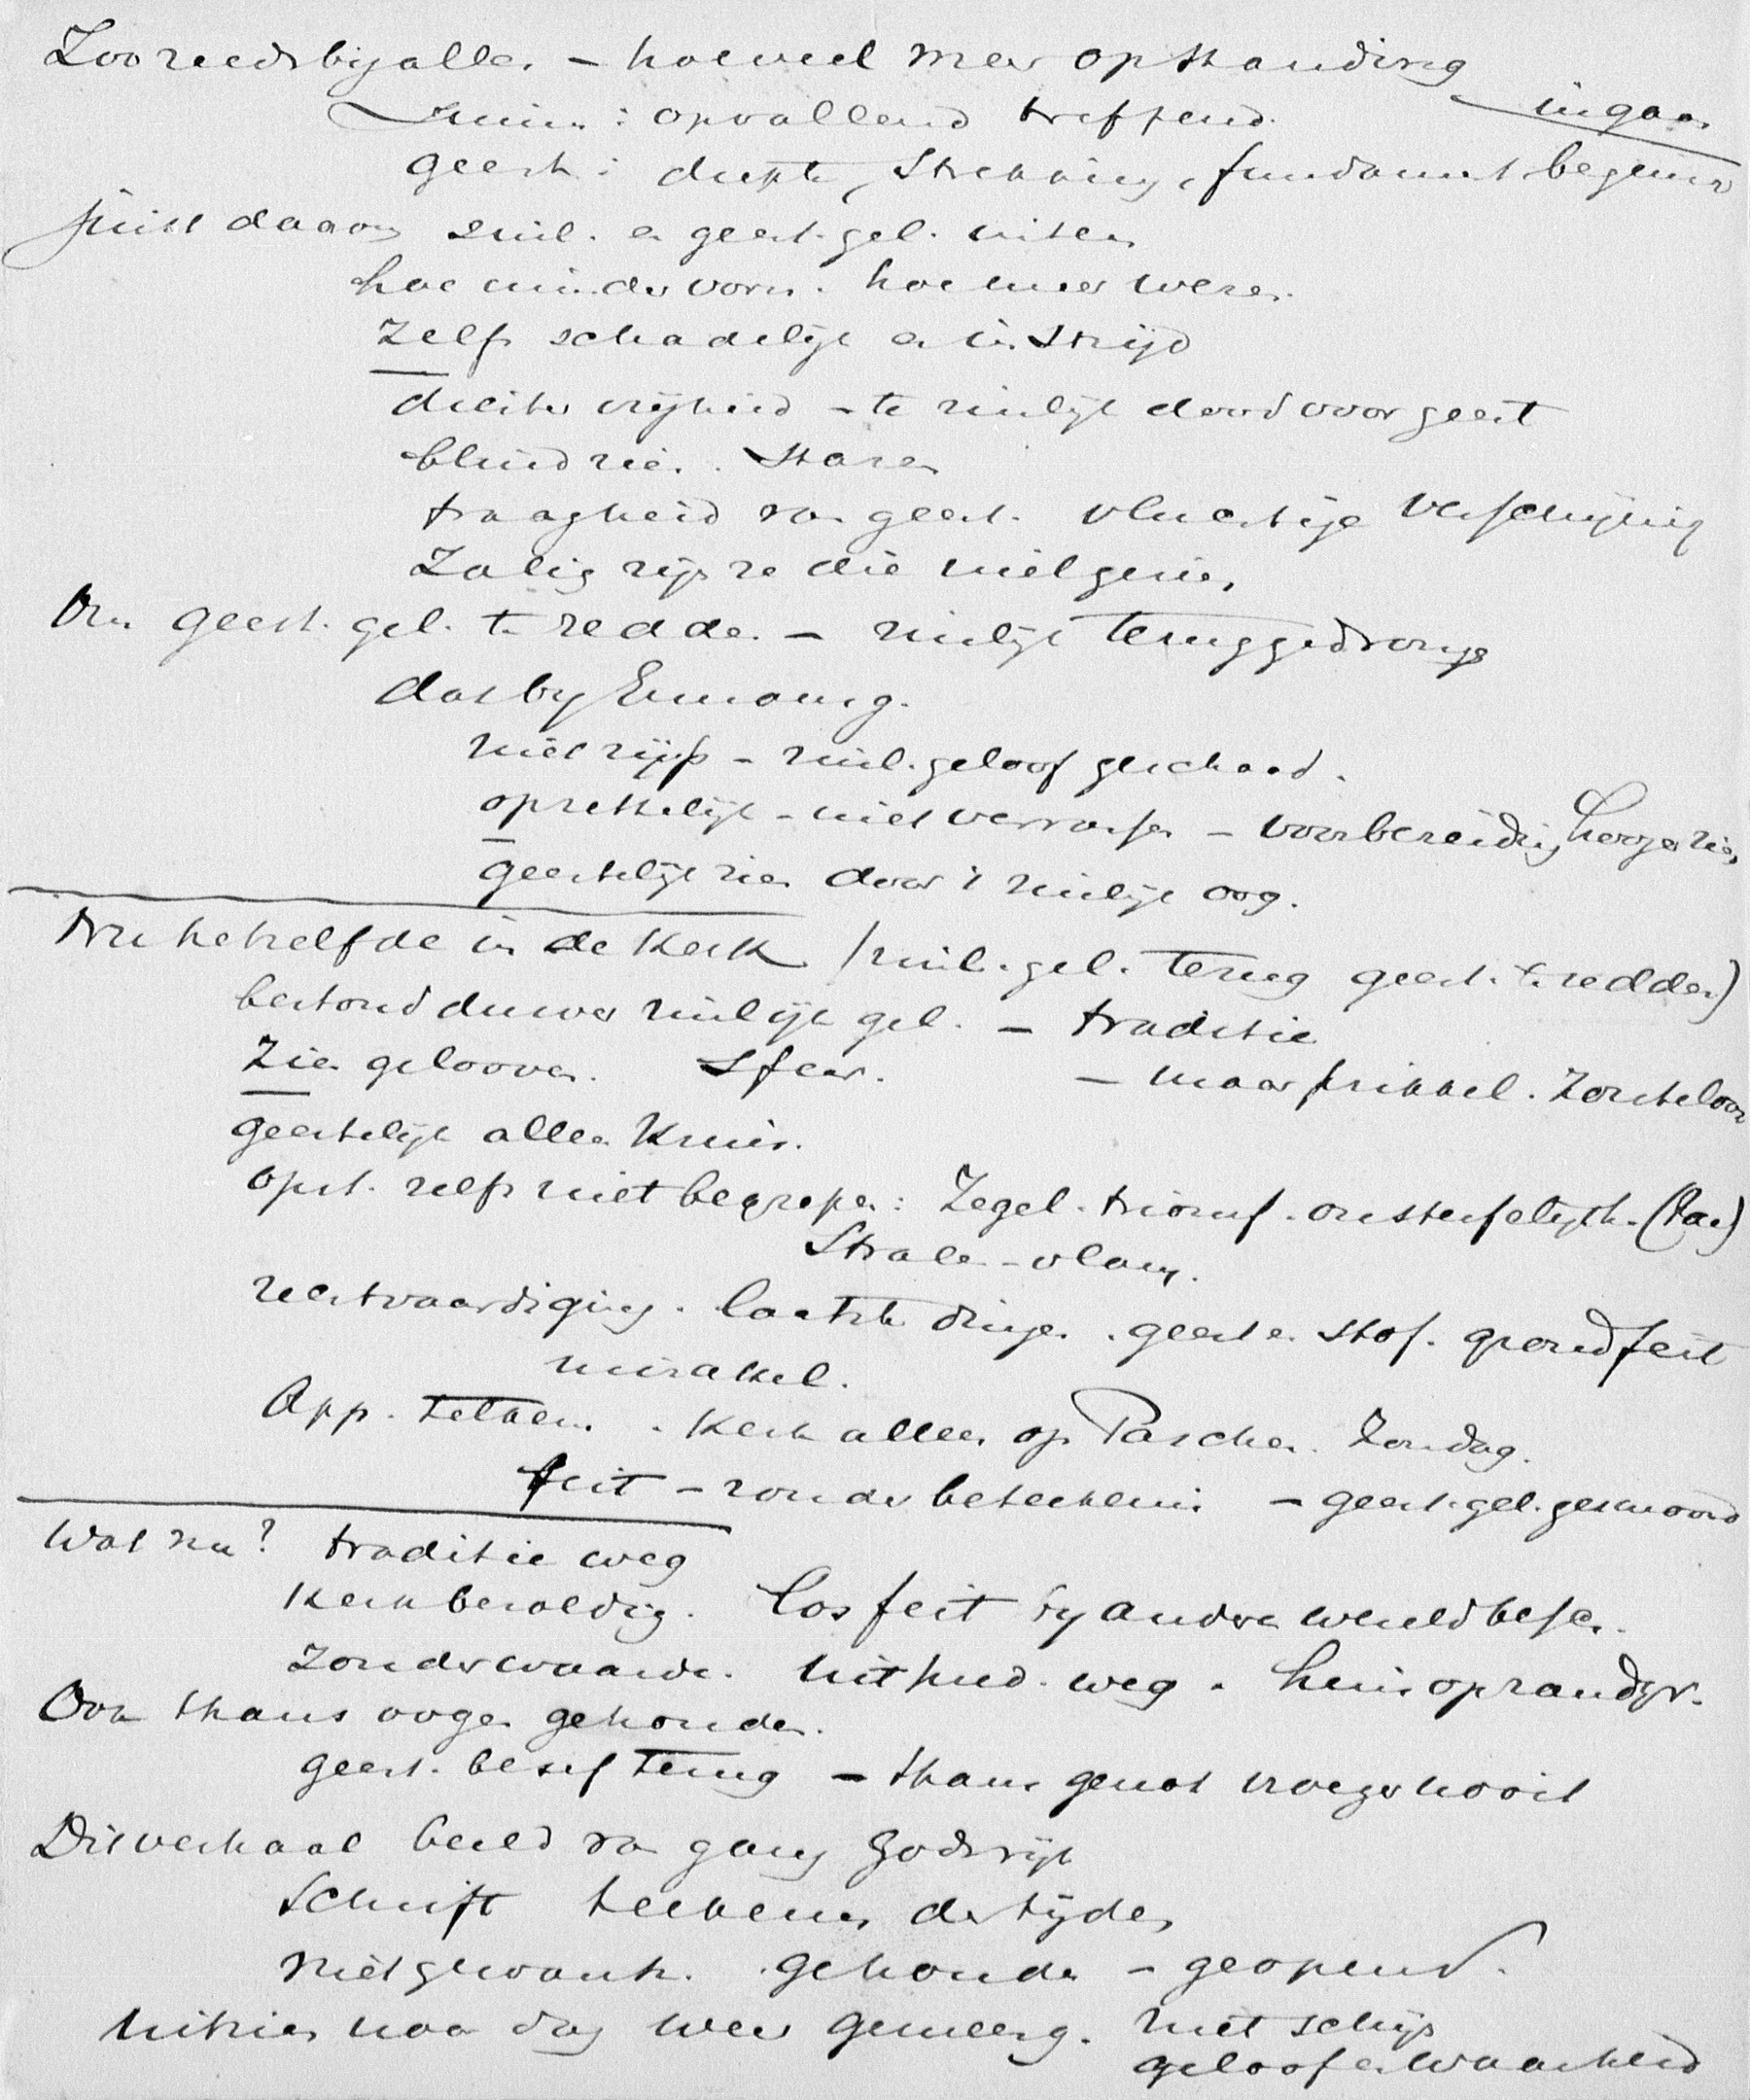 Zoo reeds bij alles – hoeveel meer opstanding
zinn. : opvallend treffend. ingaan
geest. : diepte, strekking, fundament beginsel
juist daarom zinl. en geest. gel. uiteen
hoe minder vorm. hoe meer wezen.
Zelfs schadelijk en in strijd
vrijheid – te zinlijk dood voor geest
blind zien. staren
traagheid van geest. vluchtige verschijning
Zalig zijn ze die niet gezien
Om geest. gel. te redden – zinlijk teruggedrongen
niet rijp – zinl. geloof geschaad.
opzettelijk – niet verrassen – voorbereiding hooger zien
geestelijk zien door 't zinlijk oog.
Nu hetzelfde in de Kerk (zinl. gel. terug geest. te redden)
bestond duwer zinlijk gel. – traditie
Zien gelooven. Sfeer. – maar prikkel.
geestelijk alleen Kruis.
opst. zelfs niet begrepen : Zegel. triomf. onsterfelijkh.
Stralen – vlam.
rechtvaardiging. laatste dingen. geest en stof. grondfeit
mirakel.
App. telkens. Kerk alleen op Paschen. Zondag.
feit – zonder beteekenis – geest. gel. gesmoord
Wat nu? traditie weg
Los feit bij andere wereldbesch.
Zonder waarde. weg.
Ook thans oogen gehouden.
geest. besef terug – thans genot vroeger nooit
Dit verhaal beeld van gang Godsrijk
Schrift teekenen der tijden
niet gewanh. gehouden – geopend.
uitzien naar dag weer gemeensch. niet schijn
geloof en waarheid